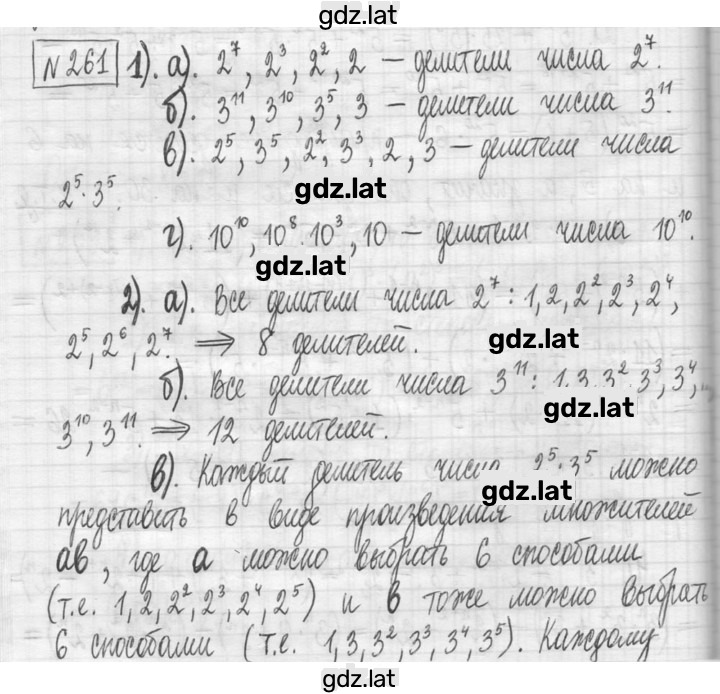 gdz.lat
№ 261 1). а). 2⁷, 2³, 2², 2 — делители числа 2⁷.
б). 3¹¹, 3¹⁰, 3⁵, 3 — делители числа 3¹¹.
в). 2⁵, 3⁵, 2², 3³, 2, 3 — делители числа
2⁵·3⁵.
gdz.lat
г). 10¹⁰, 10⁸, 10³, 10 — делители числа 10¹⁰.
gdz.lat
2). а). Все делители числа 2⁷: 1, 2, 2², 2³, 2⁴,
2⁵, 2⁶, 2⁷. ⇒ 8 делителей.
gdz.lat
б). Все делители числа 3¹¹: 1, 3, 3², 3³, 3⁴, ...,
gdz.lat
3¹⁰, 3¹¹. ⇒ 12 делителей.
в). Каждый делитель числа 2⁵·3⁵ можно
gdz.lat
представить в виде произведения множителей
ав, где а можно выбрать 6 способами
(т.е. 1, 2, 2², 2³, 2⁴, 2⁵) и в тоже можно выбрать
6 способами (т.е. 1, 3, 3², 3³, 3⁴, 3⁵). Каждому
gdz.lat